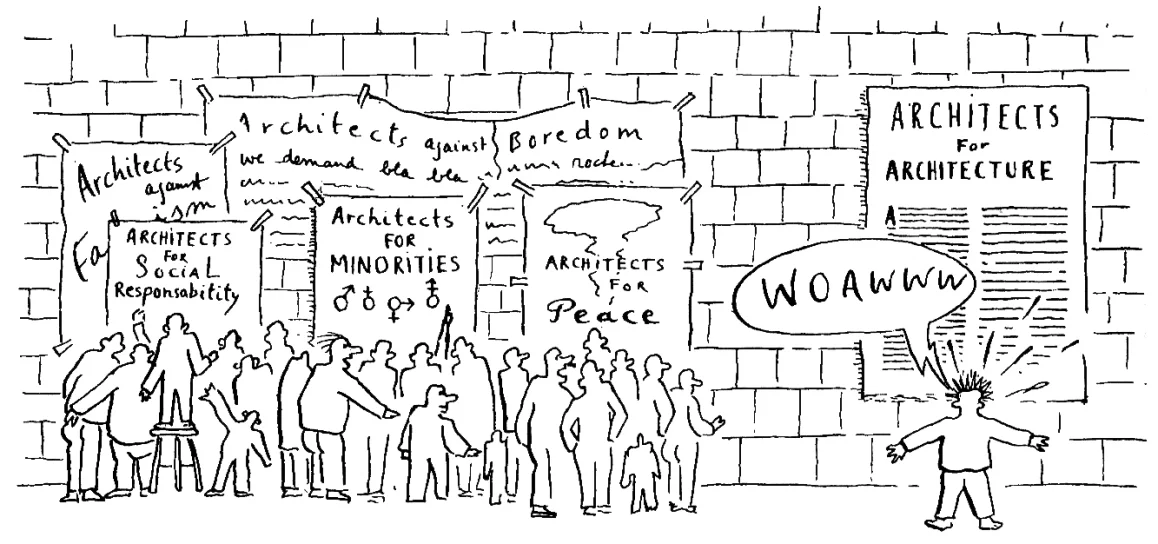 Architects
against
ism
Fa
Architects against Boredom
we demand bla bla
ARCHITECTS
FOR
SOCIAL
Responsabitity
Architects
FOR
MINORITIES
ARCHITECTS
FOR
Peace
ARCHITECTS
For
ARCHITECTURE
A
WOAWWW